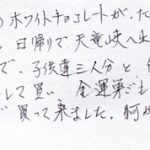 のホワイトチョコレートが、た
日帰りで 天竜峡へ
で、子供達三人分と
して買い 金運
買って来ました。何か